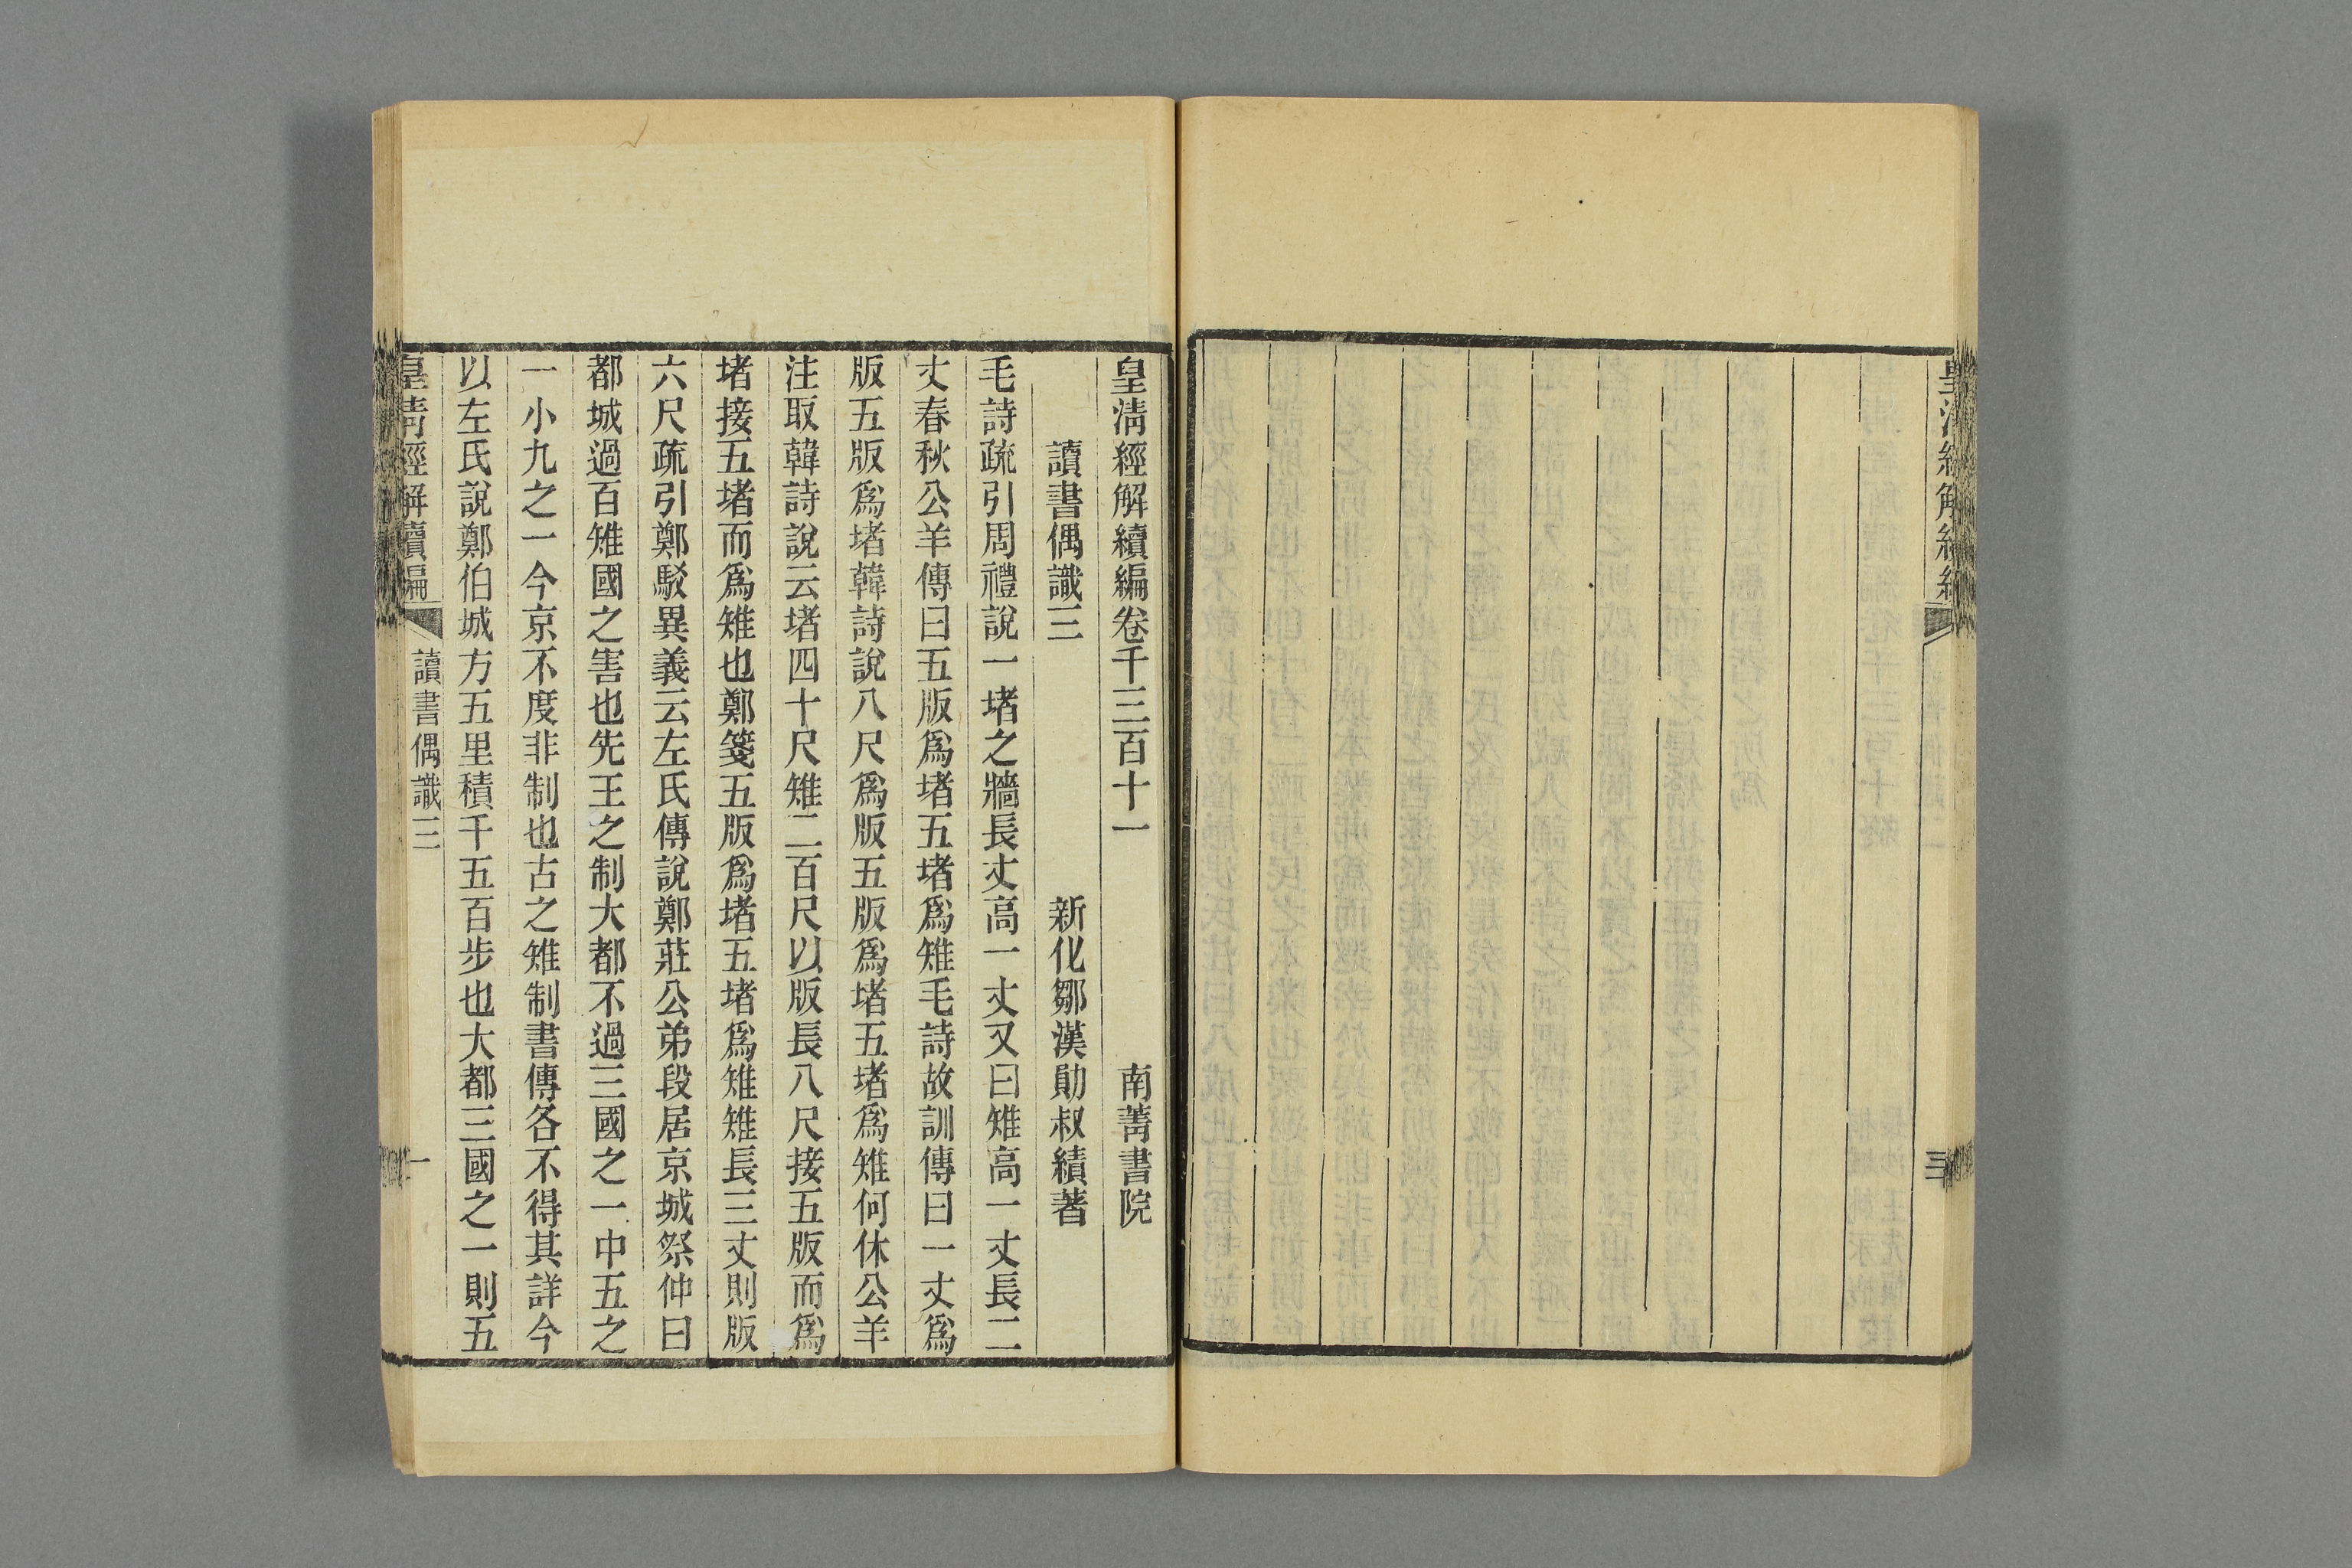 皇清經解續編
三
皇清經解續編卷千三百十一 南菁書院
讀書偶識三 新化鄒漢勛叔績著
毛詩疏引周禮說一堵之牆長丈高一丈又曰雉高一丈長二
丈春秋公羊傳曰五版爲堵五堵爲雉毛詩故訓傳曰一丈爲
版五版爲堵韓詩說八尺爲版五版爲堵五堵爲雉何休公羊
注取韓詩說云堵四十尺雉二百尺以版長八尺接五版而爲
堵接五堵而爲雉也鄭箋五版爲堵五堵爲雉雉長三丈則版
六尺疏引鄭駁異義云左氏傳說鄭莊公弟段居京城祭仲曰
都城過百雉國之害也先王之制大都不過三國之一中五之
一小九之一今京不度非制也古之雉制書傳各不得其詳今
以左氏說鄭伯城方五里積千五百步也大都三國之一則五
皇清經解續編 讀書偶識三 一